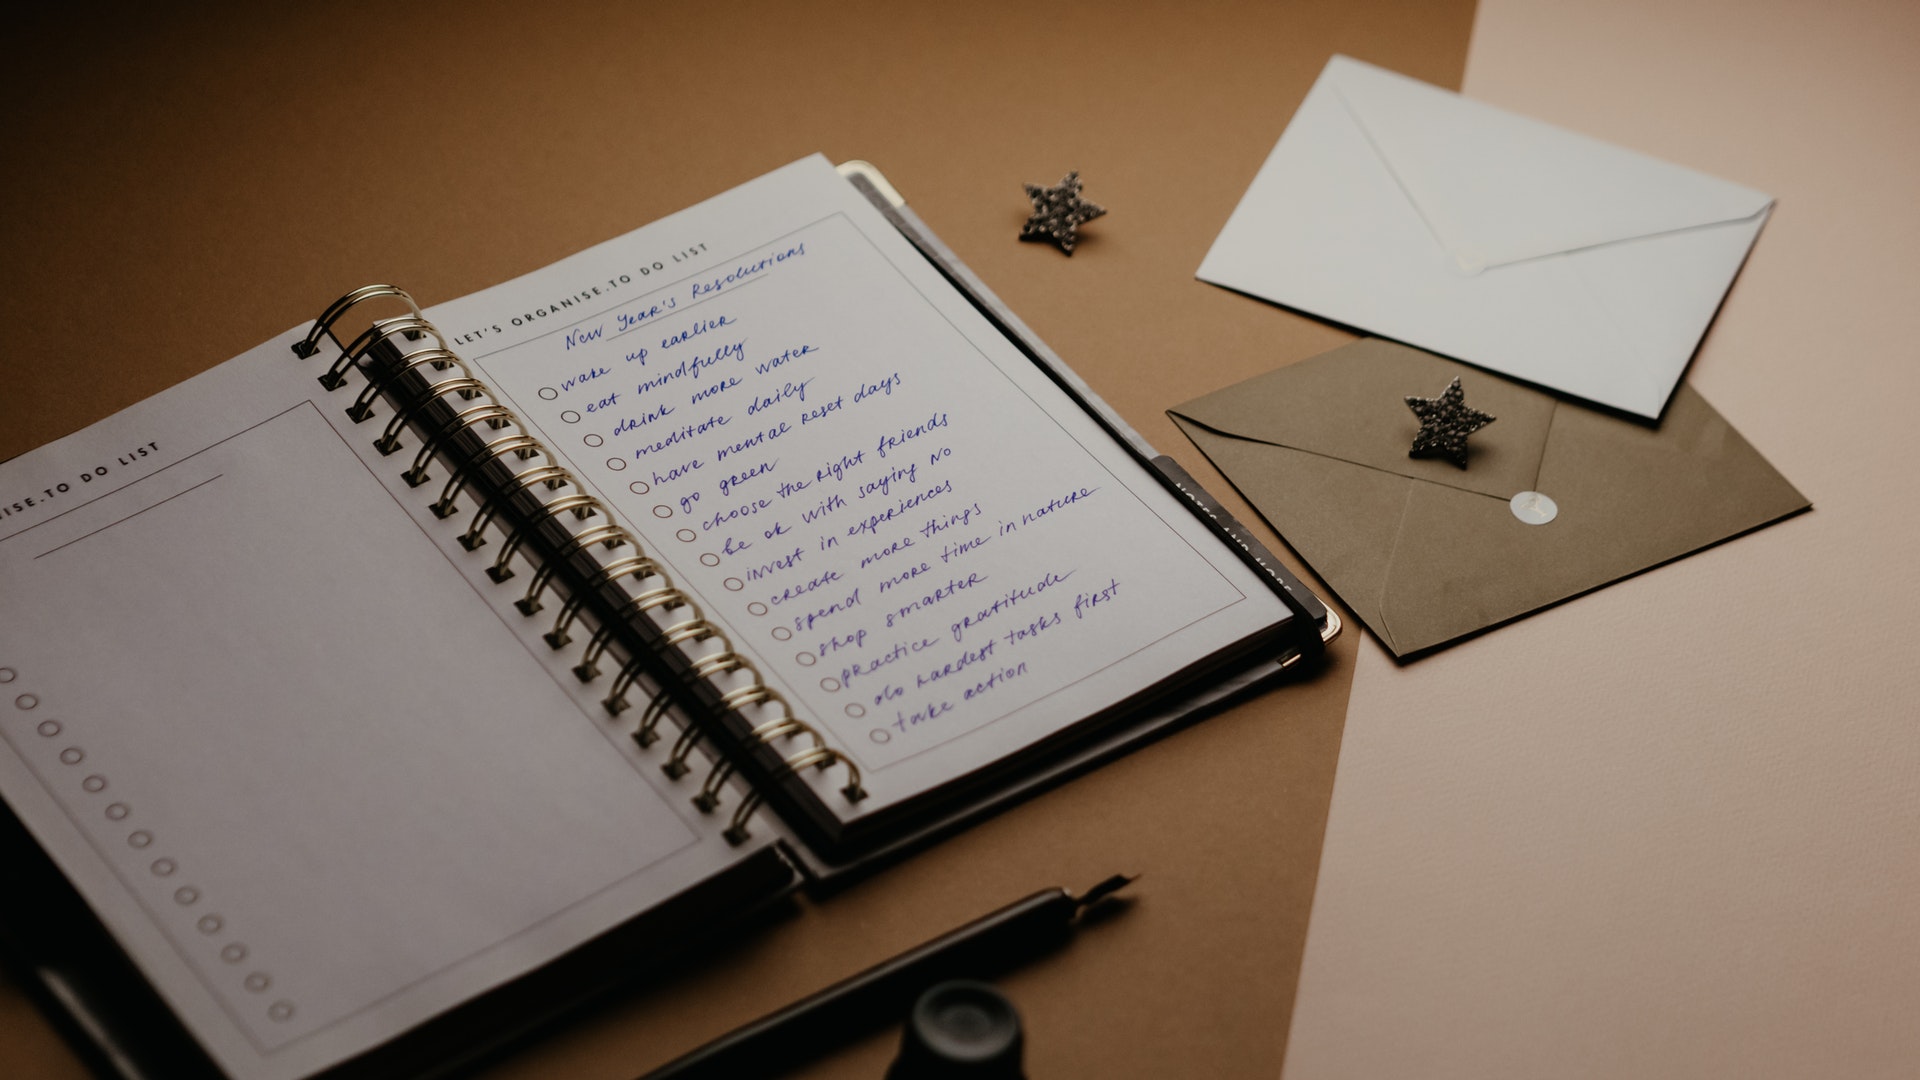 ISE.TO DO LIST
LET'S ORGANISE.TO DO LIST
New Year's Resolutions
wake up earlier
eat mindfully
drink more water
meditate daily
have mental reset days
go green
choose the right friends
be ok with saying no
invest in experiences
create more things
spend more time in nature
shop smarter
practice gratitude
do hardest tasks first
take action